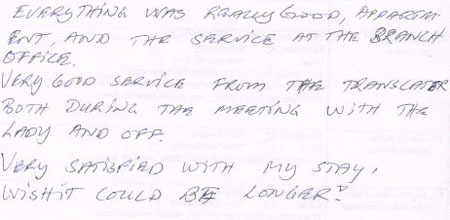 EVERYTHING WAS REALLY GOOD, APPARTM
ENT, AND THE SERVICE AT THE BRANCH
OFFICE.
VERY GOOD SERVICE FROM THE TRANSLATER
BOTH DURING THE MEETING WITH THE
LADY AND OFF.
VERY SATISFIED WITH MY STAY,
WISH IT COULD BE LONGER!